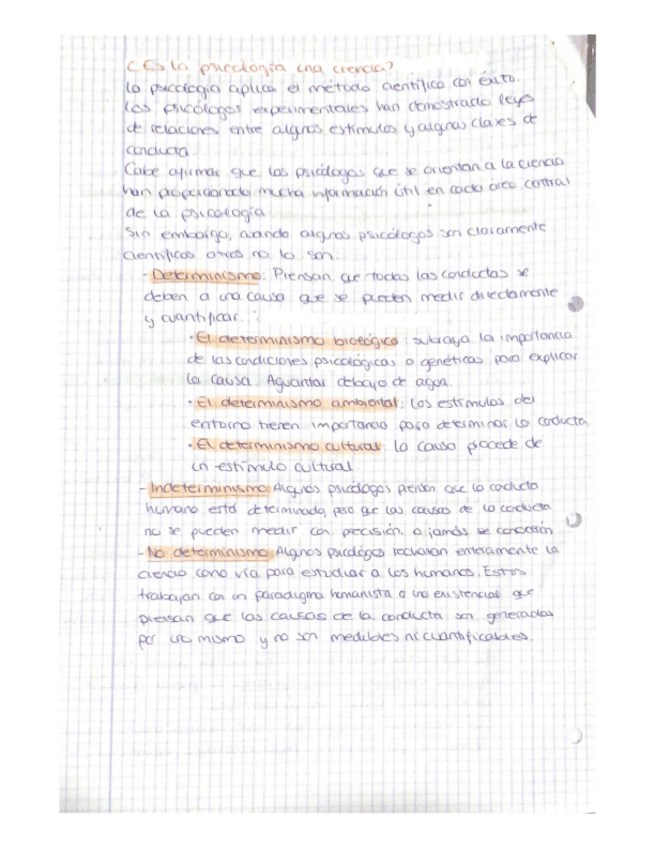 ¿Es la psicología una ciencia?
La psicología aplica el método científico con éxito.
Los psicólogos experimentales han demostrado leyes
de relaciones entre algnos estímulos y algnas clases de
conducta.
Cabe afirmar que los psicólogos que se orientan a la ciencia
han proporcionado mucha información útil en cada área central
de la psicología.
Sin embargo, cuando algnos psicólogos son claramente
científicos otros no lo son:
- Determinismo: Piensan que todas las conductas se
deben a una causa que se pueden medir directamente
y cuantificar.
· El determinismo biológico: subraya la importancia
de las condiciones psicológicas o genéticas para explicar
la causa. Aguantar debajo de agua.
· El determinismo ambiental: Los estímulos del
entorno tienen importancia para determinar la conducta
· El determinismo cultural: la causa procede de
un estímulo cultural
- Indeterminismo: Algunos psicólogos piensan que la conducta
humana está determinada, pero que las causas de la conducta
no se pueden medir con precisión o jamás se conocerán
- No determinismo: Algnos psicólogos rechazan enteramente la
ciencia como vía para estudiar a los humanos. Estos
trabajan con un paradigma humanista o uno existencial que
piensan que las causas de la conducta son generadas
por uno mismo y no son medibles ni cuantificables.